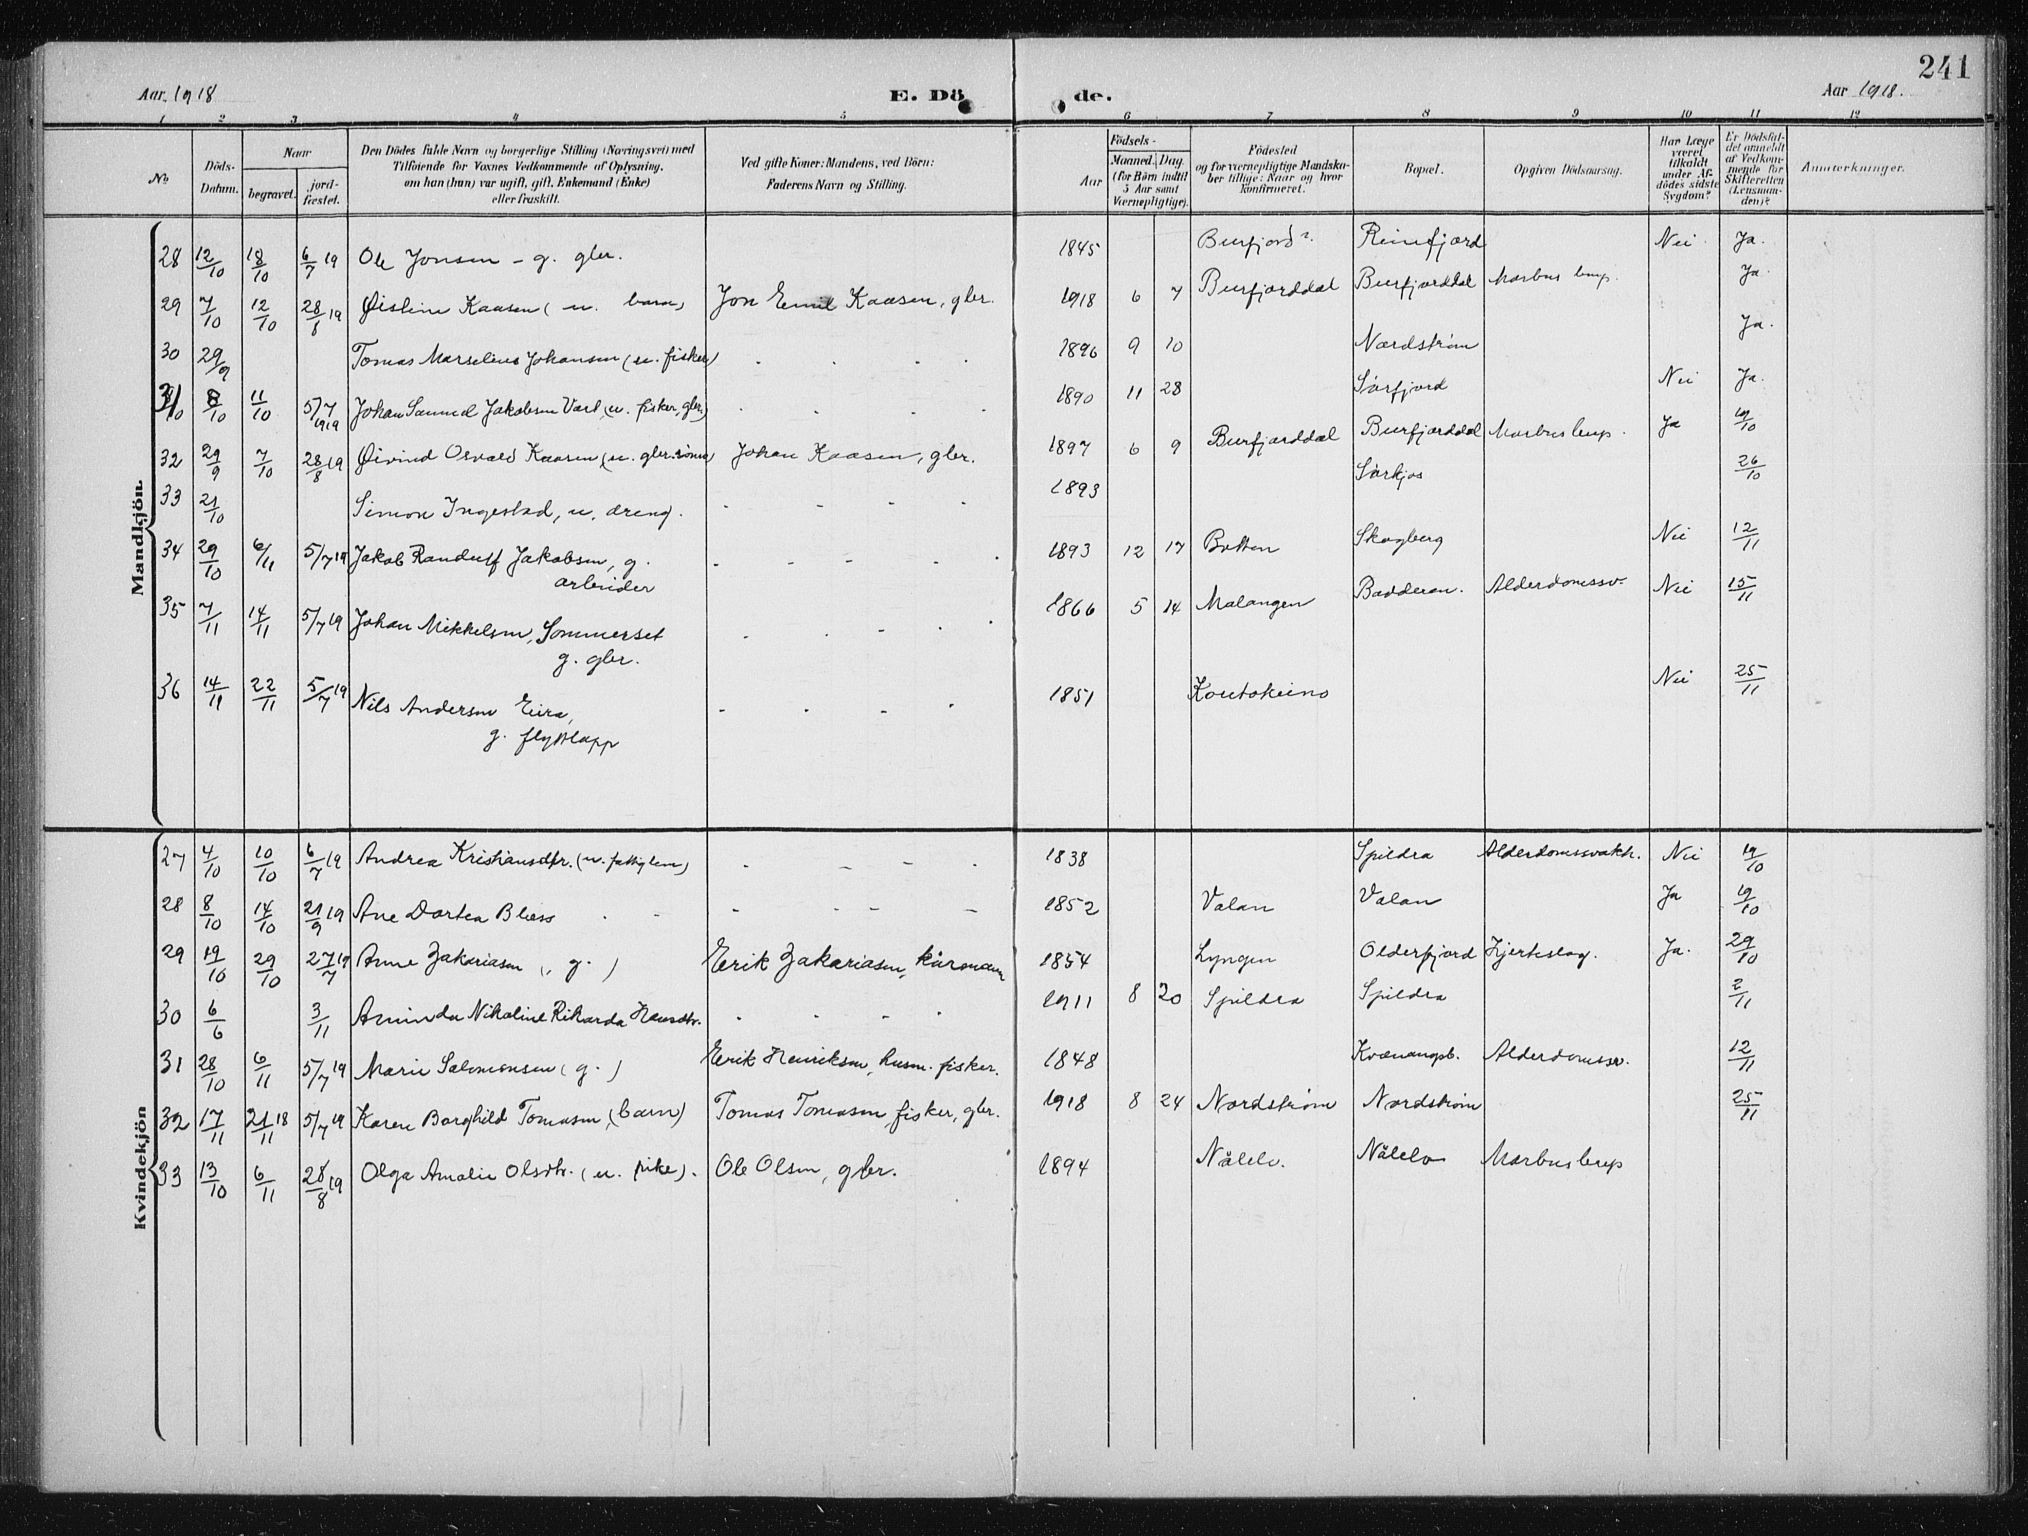 241
Aar 1918 E. Dö de. Aar 1918.
1 2 3 4 5 6 7 8 9 10 11 12
No Döds-Datum. Naar begravet. jord-fæstet. Den Dödes fulde Navn og borgerlige Stilling (Næringsvei) med Tilföiende for Voxnes Vedkommende af Oplysning, om han (hun) var ugift, gift, Enkemand (Enke) eller fraskilt. Ved gifte Koner: Mandens, ved Börn: Faderens Navn og Stilling. Aar Födsels- Maaned. Dag. (for Börn indtil 5 Aar samt Værnepligtige). Födested og for værnepligtige Mandska-ber tillige: Naar og hvor konfirmeret. Bopæl. Opgiven Dödsaarsag. Har Læge været tilkaldt under Af-dödes sidste Sygdom? Er Dödsfal-det anmeldt af Vedkom-mende for Skifteretten (Lensman-den)? Anmærkninger.
Mandkjön.
28 12/10 18/10 6/7 19 Ole Jonsen - g. gbr. 1845 Burfjord? Reinfjord Nei Ja.
29 7/10 12/10 28/8 19 Øistein Kaasen (u. barn) Jon Emil Kaasen, gbr. 1918 6 7 Burfjorddal Burfjorddal Morbus Ja.
30 29/9 Tomas Marselius Johansen (u. fisker) 1896 9 10 Nordstrøm Ja.
31 8/10 11/10 5/7 1919 Johan Samuel Jakobsen (u. fisker, gbr.) 1890 11 28 Sörfjord Nei Ja.
32 29/9 7/10 28/8 19 Øivind Osvald Kaasen (u. gbr.sönn) Johan Kaasen, gbr. 1897 6 9 Burfjorddal Burfjorddal Morbus Ja 19/10
33 21/10 Simon Ingestad, u. dreng. 1893 Sörkjos 26/10
34 29/10 6/11 5/7 19 Jakob Randulf Jakobsen, g. 1893 12 17 Botten Skogberg Nei 12/11
arbeider
35 7/11 14/11 5/7 19 Johan Mikkelsen, Sommerset 1866 5 14 Malangen Badderen. Alderdomssv. Nei 15/11
g. gbr.
36 14/11 22/11 5/7 19 Nils Andersen Eira, 1851 Koutokeino Nei 25/11
g. flytlapp
Kvindekjön
27 4/10 10/10 6/7 19 Andrea Kristiansdtr. (u. fattiglem) 1838 Spildra Alderdomssvakh. Nei 19/10
28 8/10 14/10 21/9 19 Ane Dortea Bless 1852 Valan Valan Ja 19/10
29 19/10 29/10 27/7 19 Anne Zakariasen (, g. ) Erik Zakariasen, kårmann 1854 Lyngen Olderfjord Hjerteslag. Ja. 29/10
30 6/6 3/11 Aminda Nikoline Rikarda Hansdtr. 1911 8 20 Spildra Spildra 2/11
31 28/10 6/11 5/7 19 Marie Salomonsen (g. ) Erik Henriksen, husm. fisker. 1848 Kvænangsb. Alderdomssv. 12/11
32 17/11 21/11 18 5/7 19 Karen Borghild Tomasen, (barn) Tomas Tomasen fisker, gbr. 1918 8 24 Nordstrøm Nordstrøm 25/11
33 13/10 6/11 28/8 19 Olga Amalie Olsdtr. (u. pike). Ole Olsen, gbr. 1894 Nålelv. Nålelv Morbus